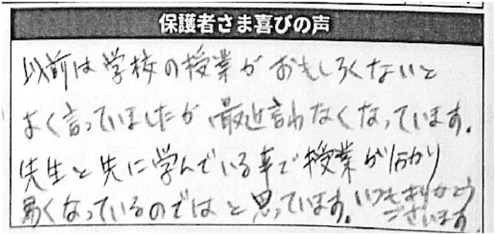 保護者さま喜びの声
以前は学校の授業がおもしろくないと
よく言っていましたが最近言わなくなっています。
先生と先に学んでいる事で授業が分かり
易くなっているのではと思っています。いつもありがとう
ございます